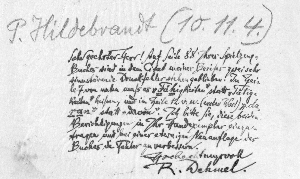 P. Hildebrandt (10.11.4.)
Sehr geehrter Herr! Auf Seite 88 Ihres Spielzeug-
Buches sind in dem Citat meiner Verse zwei sehr
sinnstörende Druckfehler stehen geblieben. In Zeile
7 von unten muß es „Fähigkeiten" statt „Tätig-
keiten" heißen, und in Zeile 12 v. u. (erstes Wort)
statt Ich bitte Sie, diese beiden
Berichtigungen in Ihr Handexemplar einzu-
tragen und bei einer etwaigen Neuauflage des
Buches die Fehler zu verbessern.
Hochachtungsvoll
R. Dehmel.